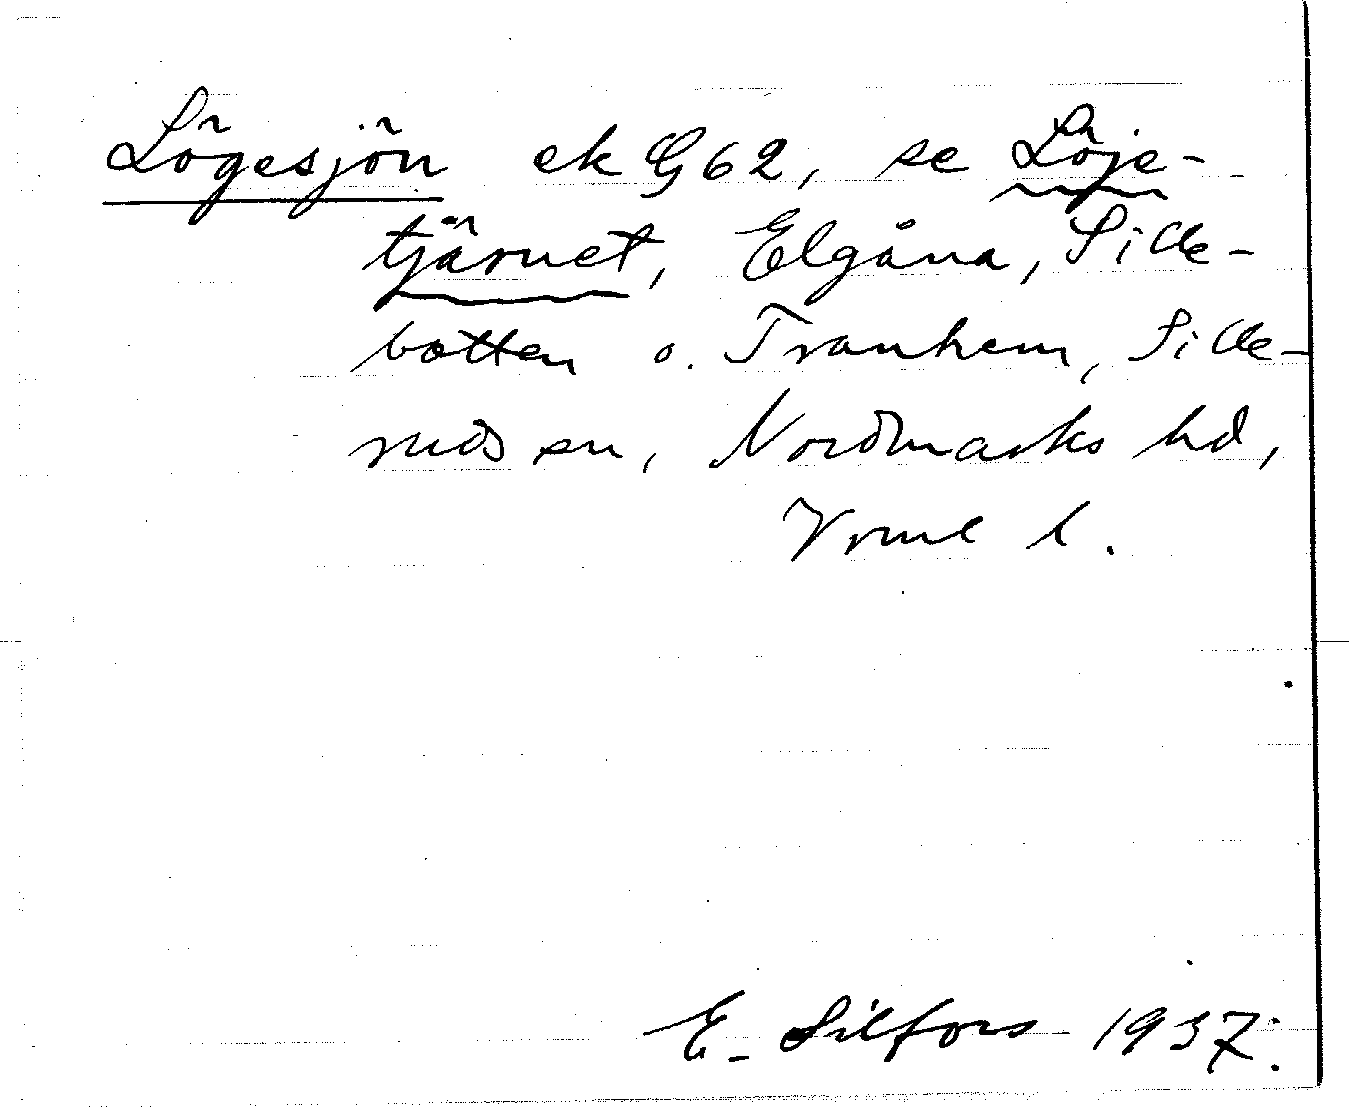 Lögesjön ek G62, se Löje-
tjärnet, Elgåna, Sille-
botten o. Tranhem, Sille-
ruds sn, Nordmarks hd,
Vrml l.
E. Silfors 1937.